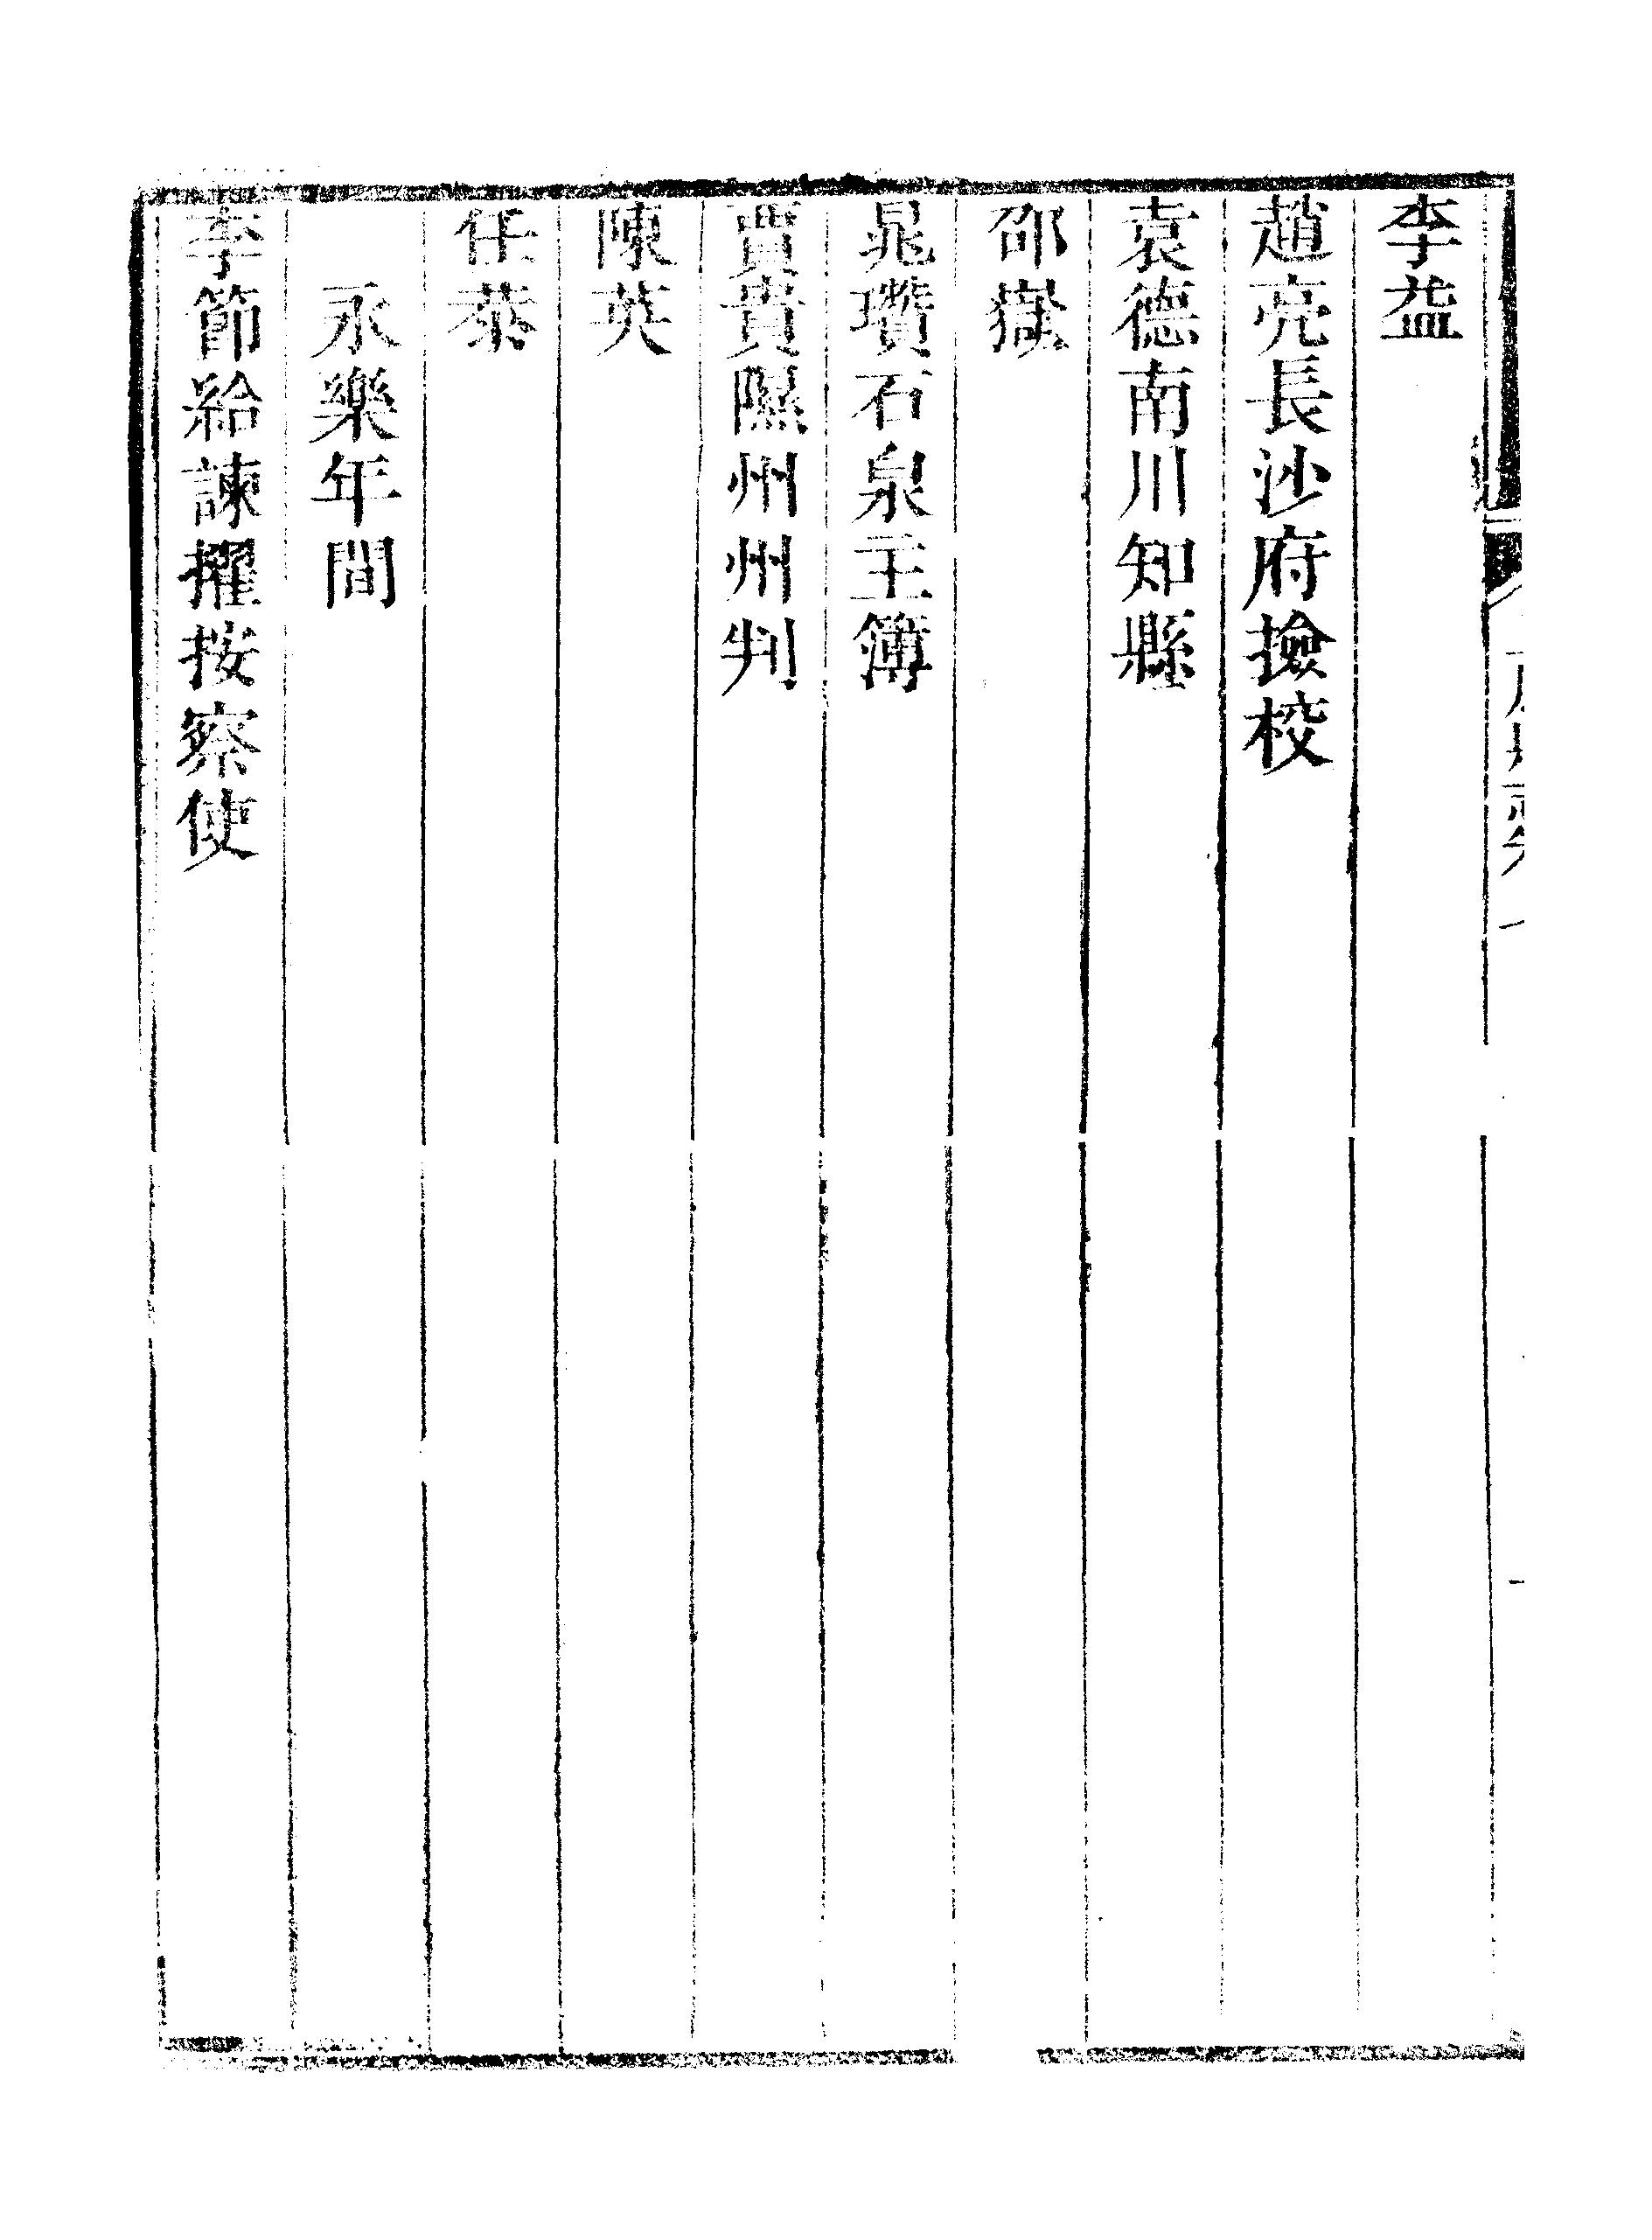 李益
趙亮長沙府撿校
袁德南川知縣
邵嶽
晁瓚石泉主簿
賈貴隰州州判
陳英
任恭
永樂年間
李節給諫擢按察使